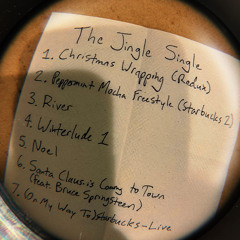 The Jingle Single
1. Christmas Wrapping (Redux)
2. Peppermint Mocha Freestyle (Starbucks 2)
3. River
4. Winterlude 1
5. Noel
6. Santa Claus is Coming to Town
(feat. Bruce Springsteen)
7. (On My Way To) Starbucks - Live